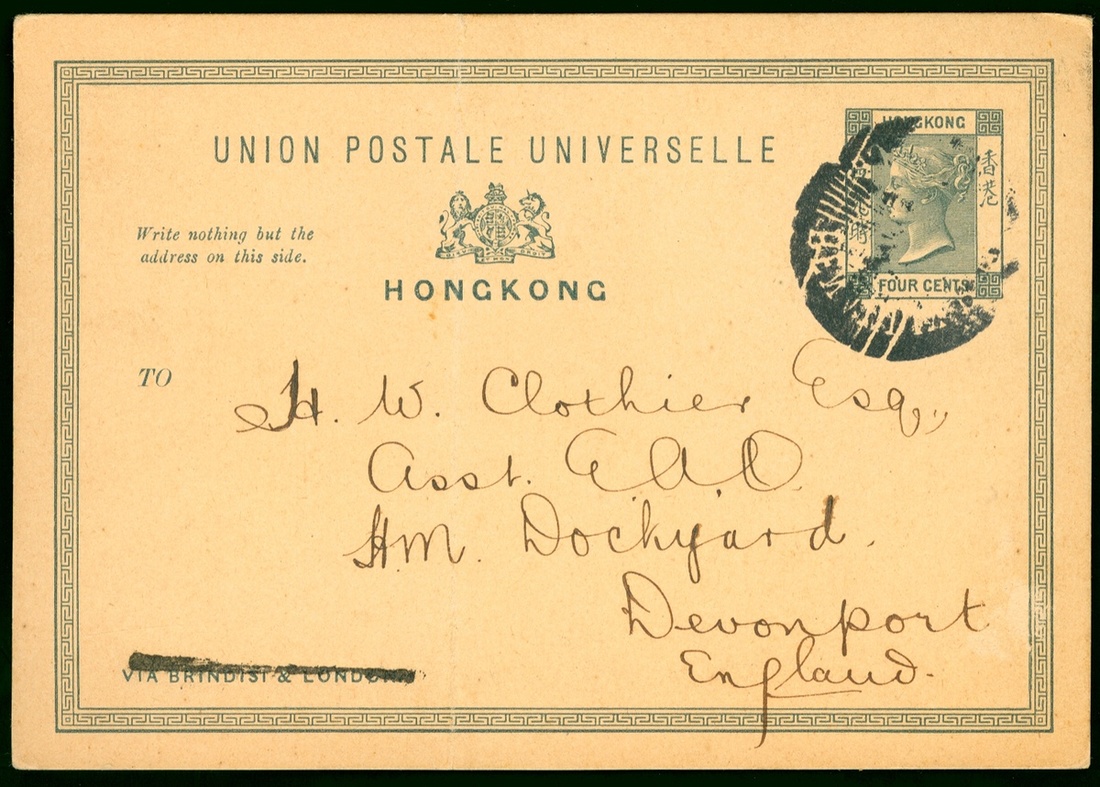 UNION POSTALE UNIVERSELLE
HONGKONG
香港
FOUR CENTS
Write nothing but the
address on this side.
HONGKONG
TO
H. W. Clothier Esq.,
Asst. E A O
H.M. Dockyard.
Devonport
England.
VIA BRINDISI & LONDON